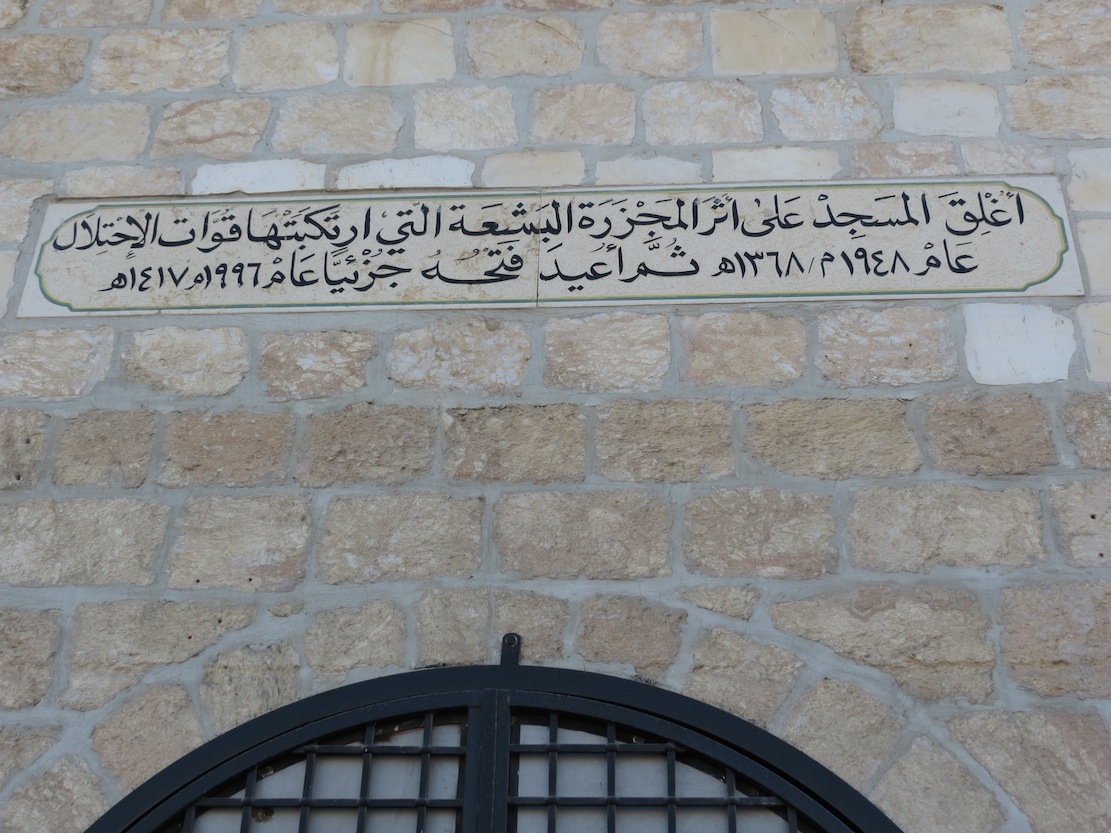 أُغْلِقَ المَسَجِدْ عَلىٰ أثَرَ المَجْزَرَة البَشِعَة الّتيْ ارتَكَبَتْهَا قُوَّات الإِحْتِلَال
عَامْ ١٩٤٨م/١٣٦٨ه ثُمَّ أُعيدَ فَتْحُهُ جزْئيًّا عَامْ ١٩٩٦م ١٤١٧ه